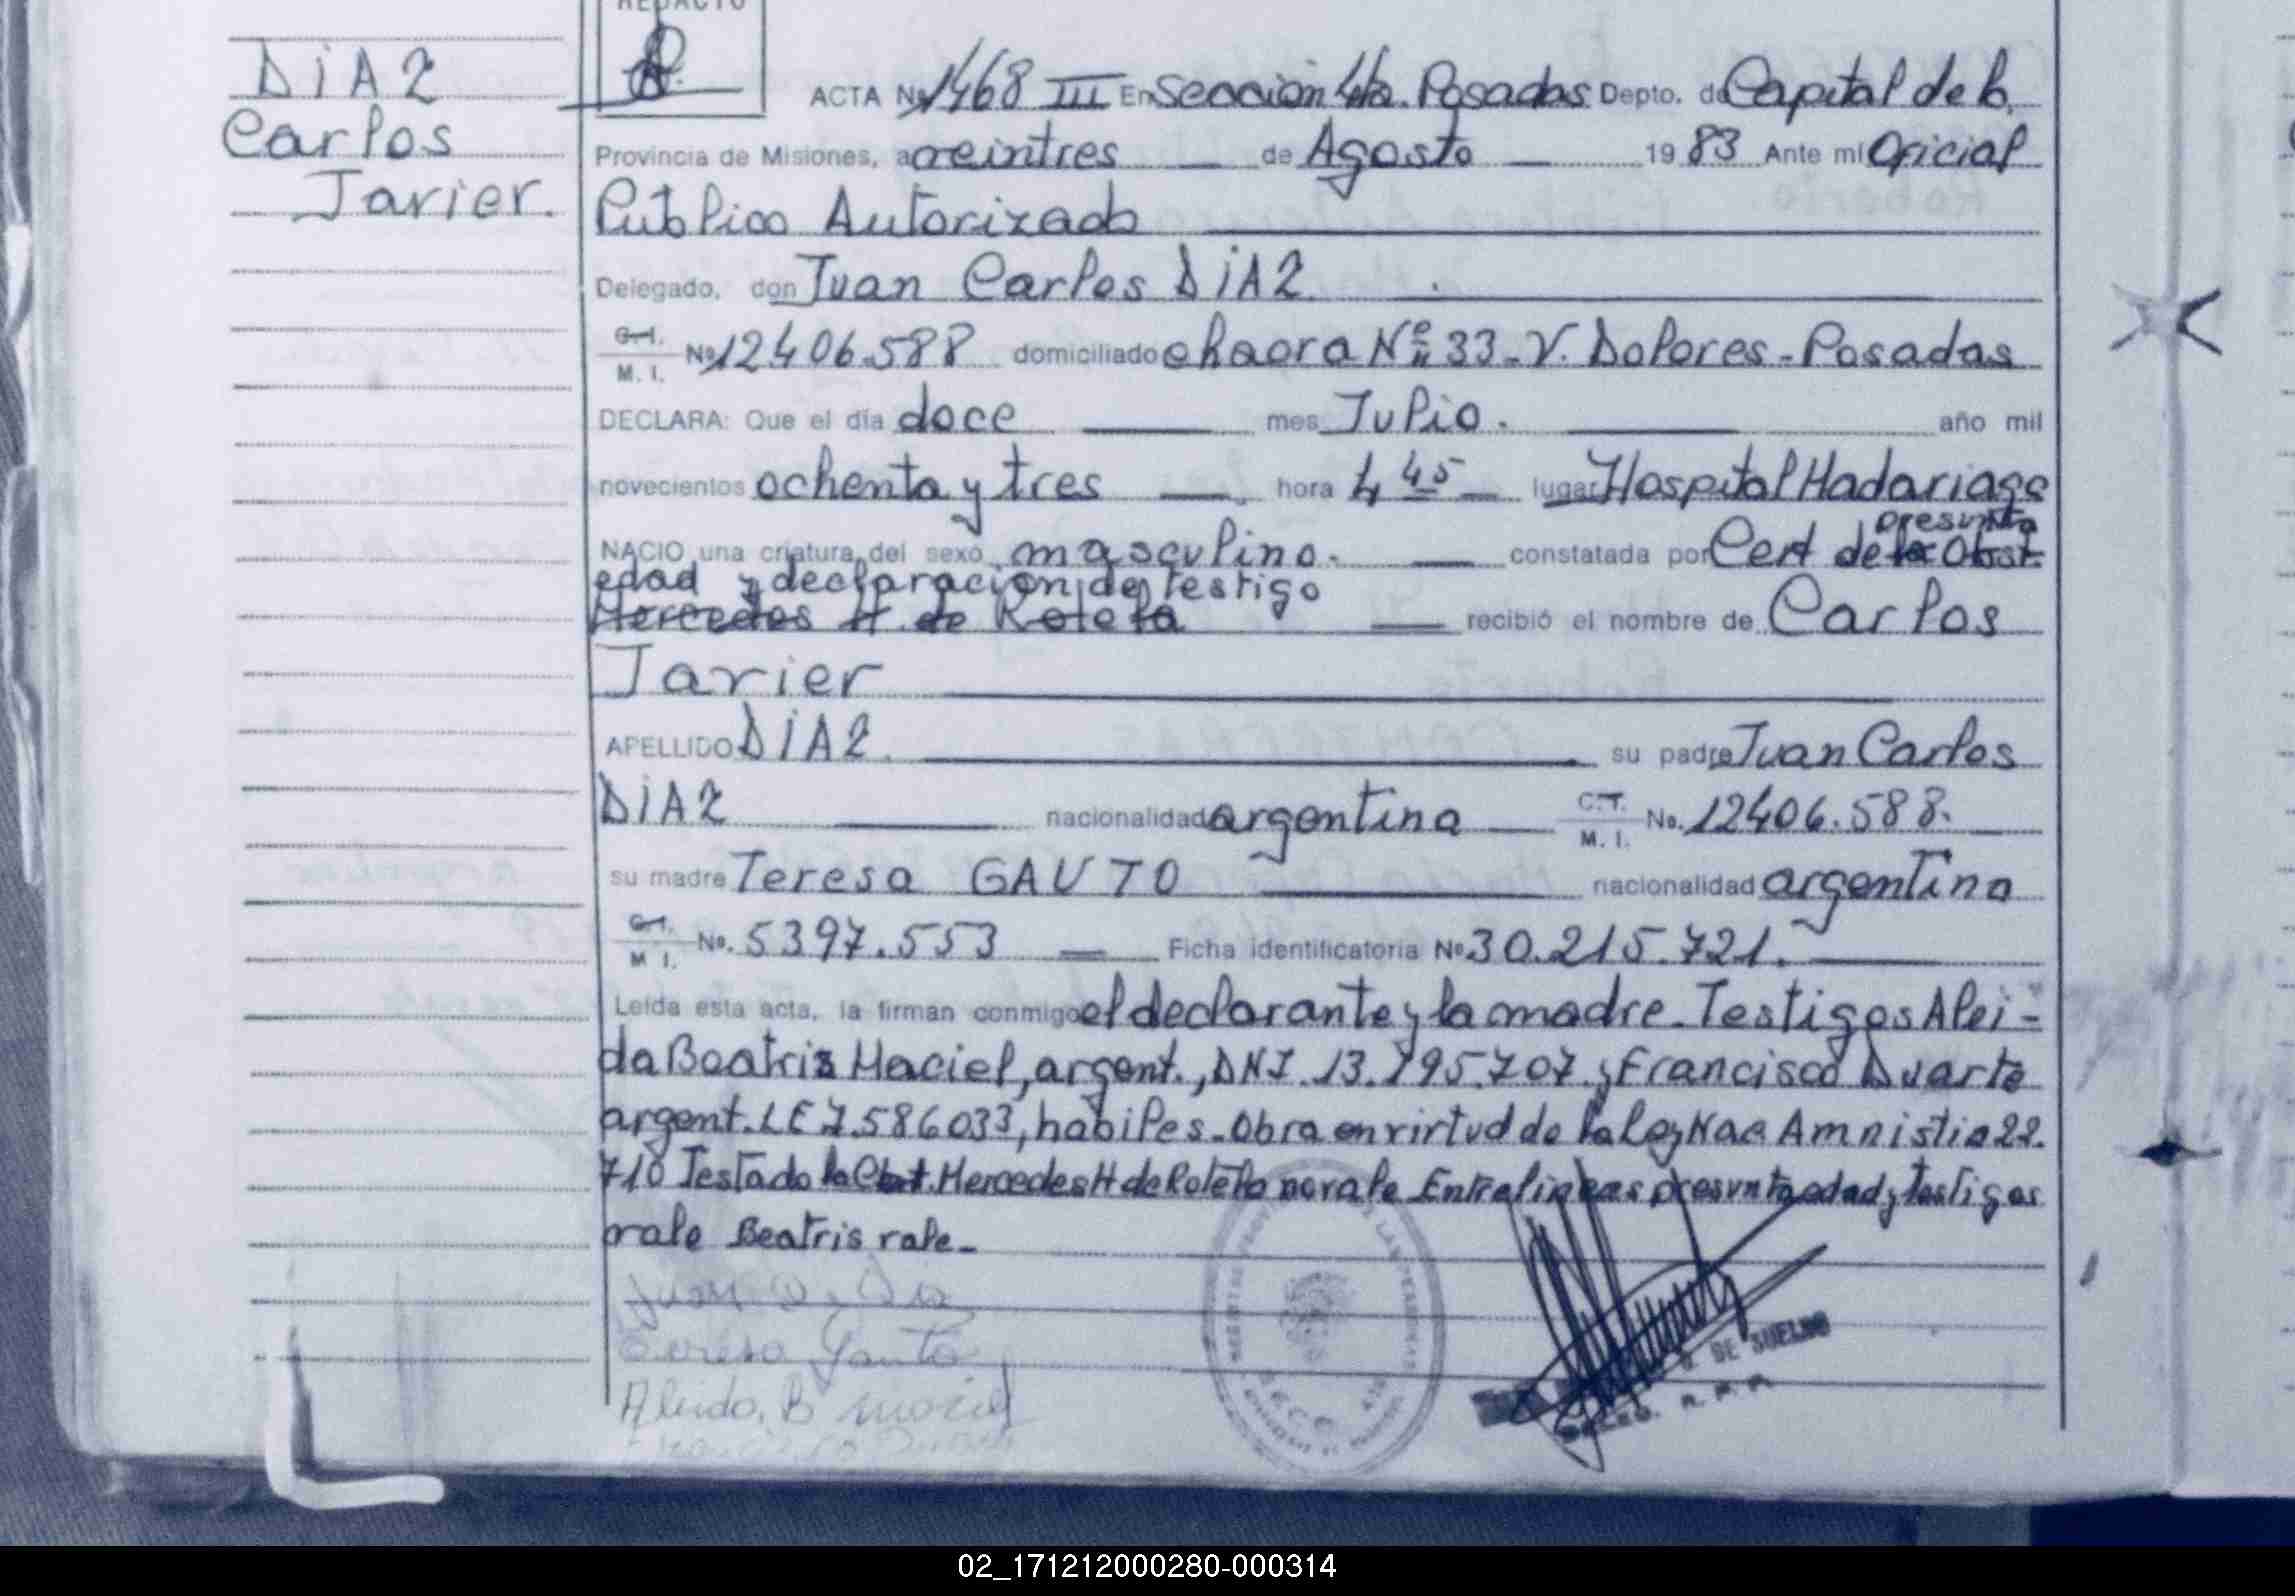 REDACTO
DIAZ
Carlos
Javier.
ACTA Nº 1468 III En Sección 4ta. Posadas Depto. de Capital de la
Provincia de Misiones, a veintres de Agosto 1983 Ante mí Oficial
Público Autorizado
Delegado, don Juan Carlos DIAZ.
C.I. M. I. Nº 12406.588 domiciliado chacra Nº 33 - V. Dolores - Posadas
DECLARA: Que el día doce mes Julio. año mil
novecientos ochenta y tres hora 4 45 lugar Hospital Madariaga
presunta
NACIO una criatura del sexo masculino. constatada por Cert de la Obst.
edad y declaración de testigo
Mercedes H. de Roleta recibió el nombre de Carlos
Javier
APELLIDO DIAZ. su padre Juan Carlos
DIAZ nacionalidad argentina C.I. M. I. No. 12406.588.
su madre Teresa GAUTO nacionalidad argentina
C.I. M I. No. 5397.553 Ficha identificatoria Nº 30.215.721.
Leída esta acta, la firman conmigo el declarante y la madre. Testigos Alei-
da Beatris Maciel, argent., DNI. 13.195.707. y Francisco Duarte
argent. LE 7.586033, habiles. Obra en virtud de la ley Nac Amnistia 22.
710 Testado la Obst. Mercedes H de Roleta no vale Entrelineas presunta edad y testigos
vale Beatris vale -
Juan C. Dia
Teresa Gauto
Aleida. B maciel
DE SUELDO
02_171212000280-000314